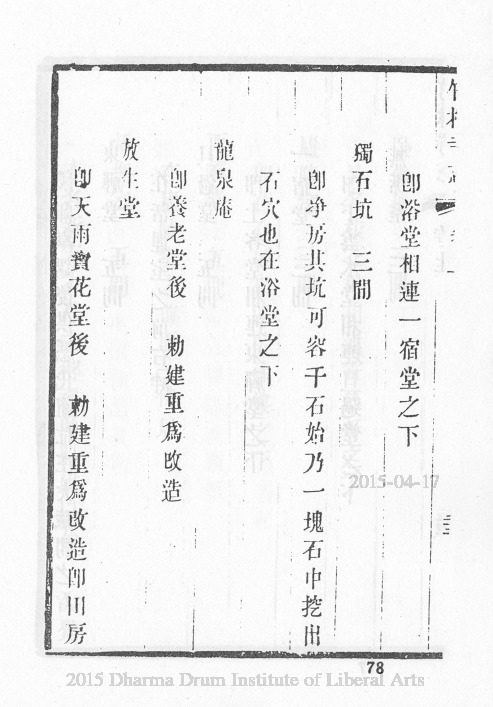 卽浴堂相連一宿堂之下
獨石坑　三間
卽淨房其坑可容千石始乃一塊石中挖出
石穴也在浴堂之下
龍泉庵
卽養老堂後　勅建重爲改造
放生堂
卽天雨寶花堂後　勅建重爲改造卽田房
2015-04-17
78
2015 Dharma Drum Institute of Liberal Arts